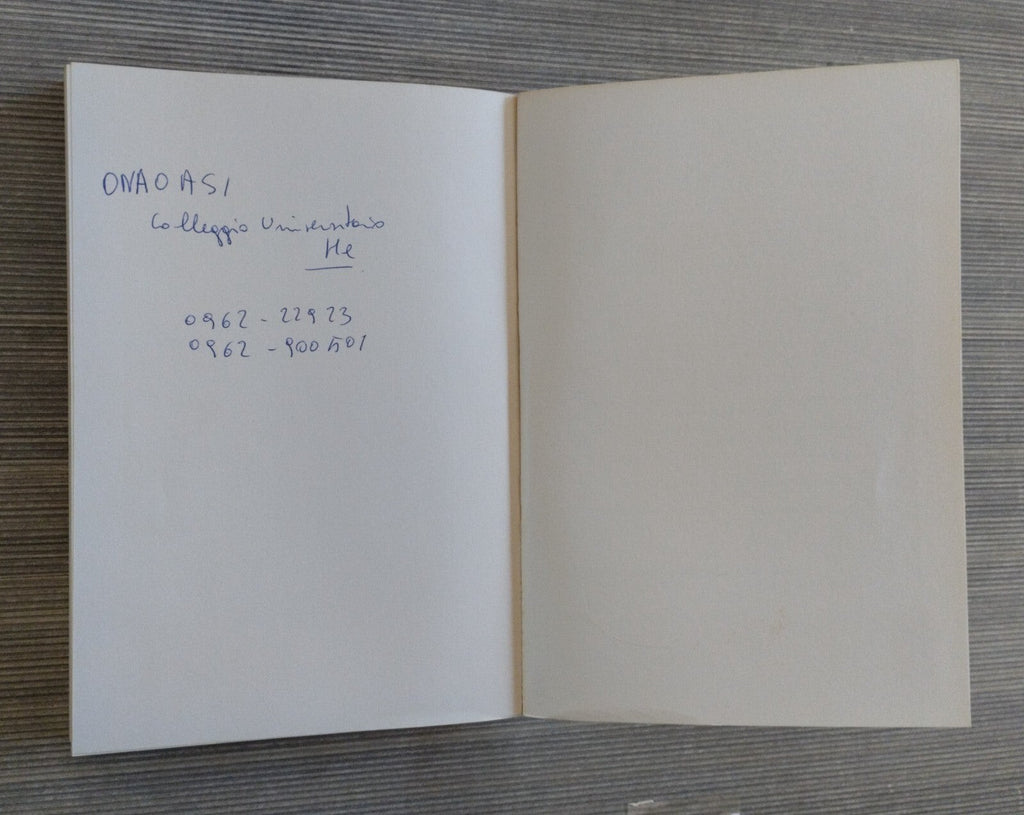 ONAOASI
Colleggio Universitario
Me
0962 - 22923
0962 - 900501